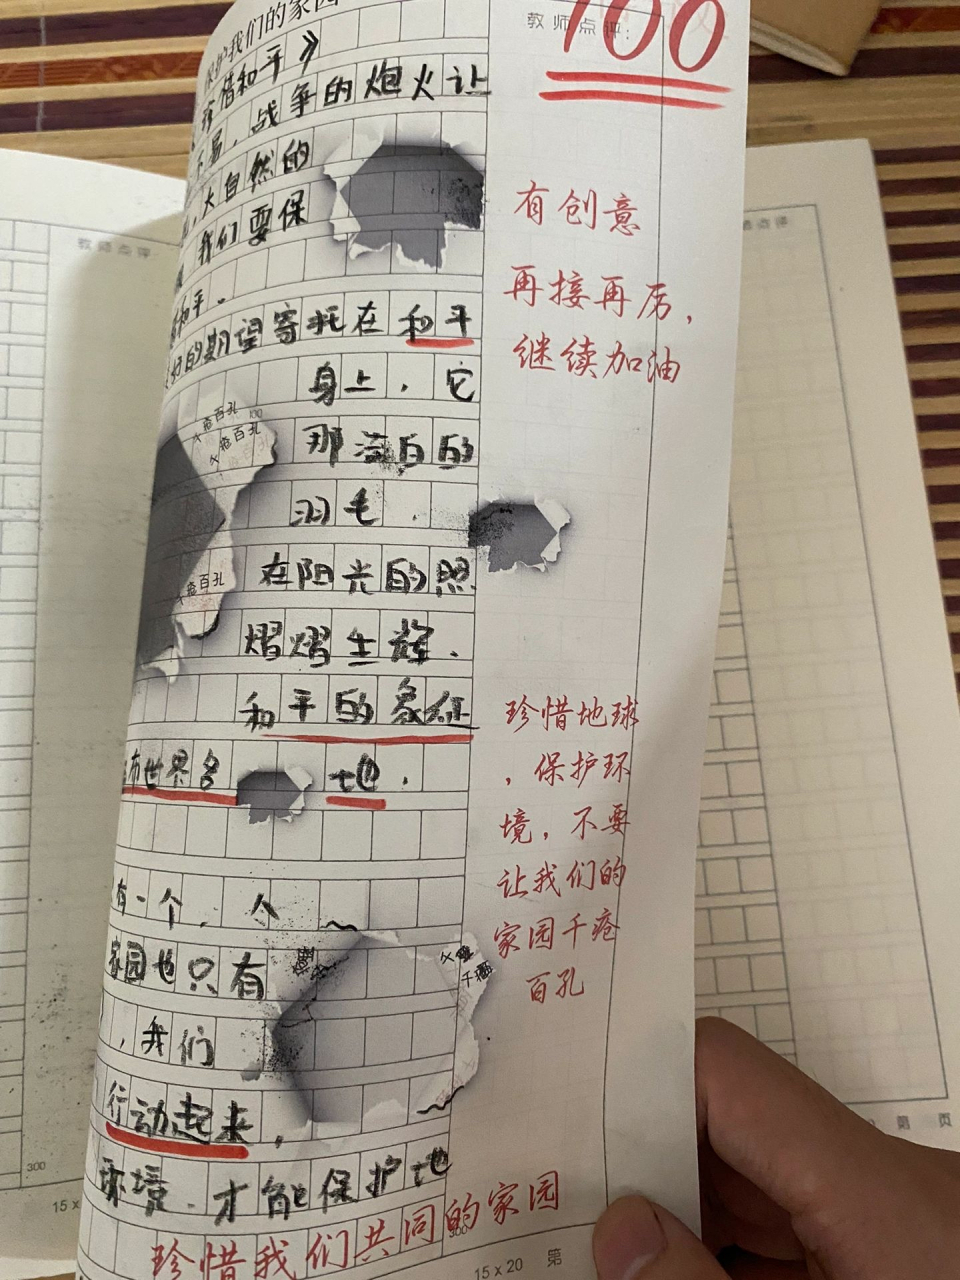 保护我们的家园
珍惜和平》
教师点评:
100
不易,战争的炮火让
,大自然的
我们要保
和平.
好的期望寄托在和平
身上,它
那洁白的
羽毛.
在阳光的照
熠熠生辉.
和平的象征
布世界各地.
有一个.人
家园也只有
,我们
行动起来,
环境.才能保护地
有创意
再接再厉,
继续加油
珍惜地球
,保护环
境,不要
让我们的
家园千疮
百孔
疮百孔
疮百孔
疮百孔
100
珍惜我们共同的家园
300
15x20 第
教师点评:
300
15x
师点评
第 页